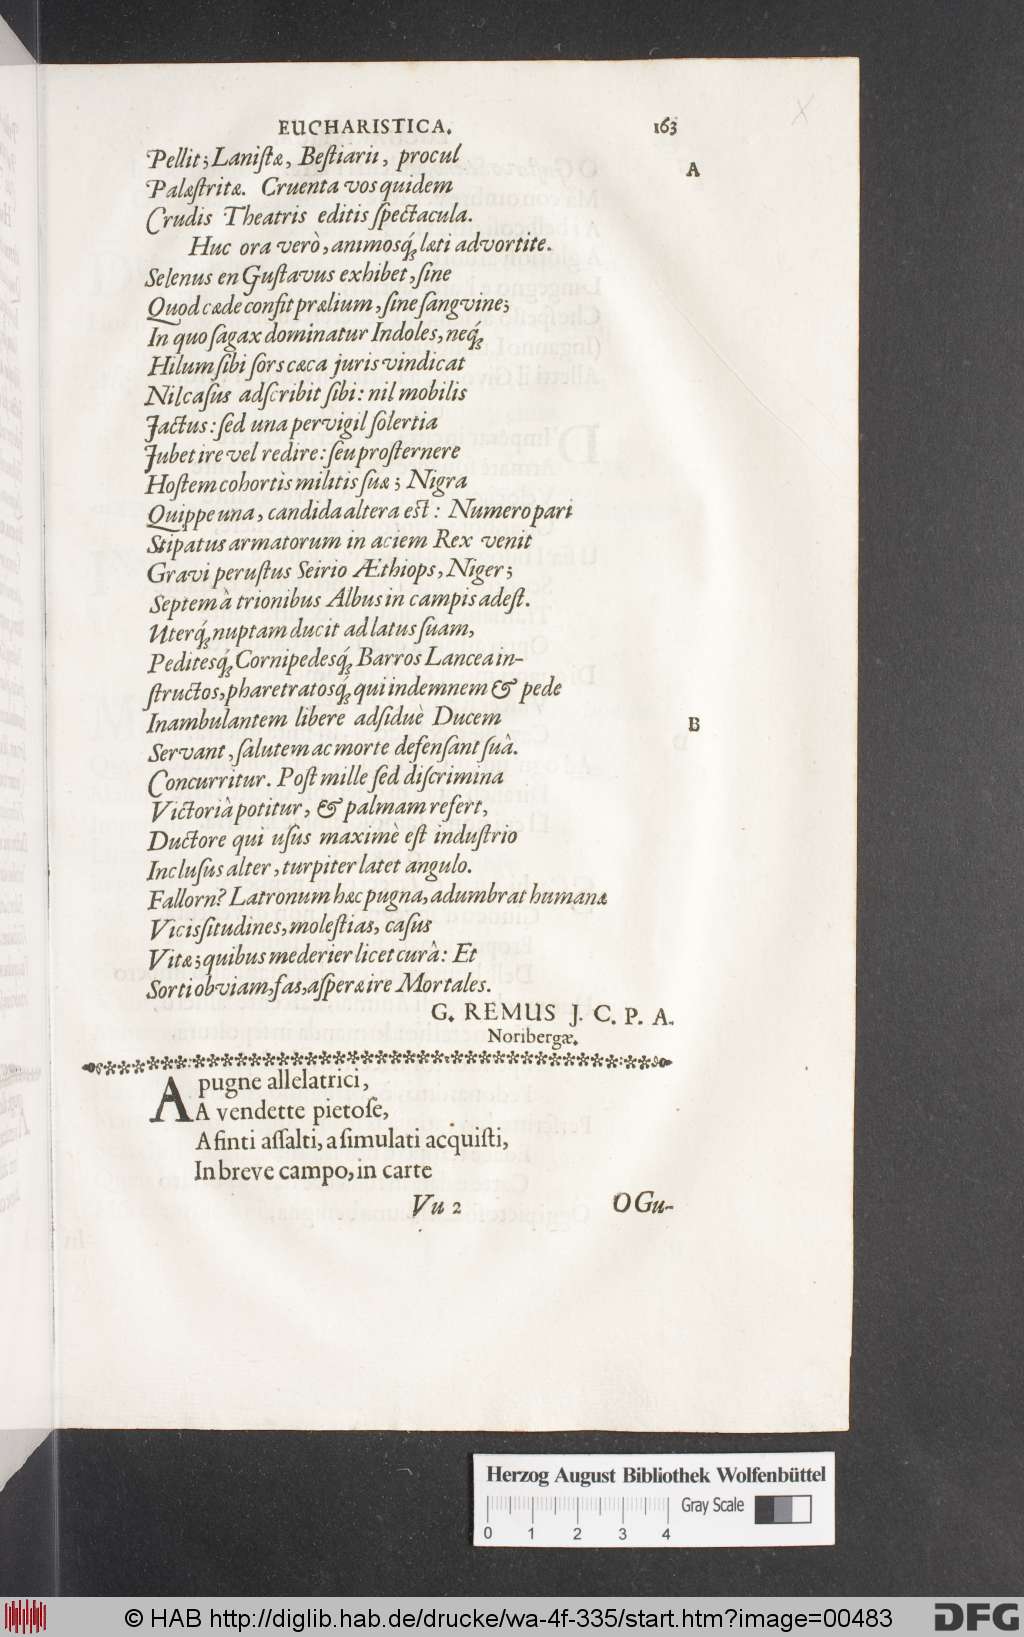 EUCHARISTICA. 163
Pellit; Lanistæ, Bestiarii, procul
A
Palæstritæ. Cruenta vos quidem
Crudis Theatris editis spectacula.
Huc ora verò, animosq́; læti advortite.
Selenus en Gustavus exhibet, sine
Quod cæde confit prælium, sine sangvine;
In quo sagax dominatur Indoles, neq́;
Hilum sibi sors cæca juris vindicat
Nil casus adscribit sibi: nil mobilis
Jactus: sed una pervigil solertia
Jubet ire vel redire: seu prosternere
Hostem cohortis militis suæ; Nigra
Quippe una, candida altera est: Numero pari
Stipatus armatorum in aciem Rex venit
Gravi perustus Seirio Æthiops, Niger;
Septem à trionibus Albus in campis adest.
Uterq́; nuptam ducit ad latus suam,
Peditesq́; Cornipedesq́; Barros Lancea in-
structos, pharetratosq́; qui indemnem & pede
Inambulantem libere adsiduè Ducem
B
Servant, salutem ac morte defensant suâ.
Concurritur. Post mille sed discrimina
Victoriâ potitur, & palmam refert,
Ductore qui usus maximè est industrio
Inclusus alter, turpiter latet angulo.
Fallorn? Latronum hæc pugna, adumbrat humanæ
Vicissitudines, molestias, casus
Vitæ; quibus mederier licet curâ: Et
Sorti obviam, fas, asperæ ire Mortales.
G. REMUS J. C. P. A.
Noribergæ.
A pugne allelatrici,
A vendette pietose,
A finti assalti, a simulati acquisti,
In breve campo, in carte
Vu 2 O Gu-
Herzog August Bibliothek Wolfenbüttel
Gray Scale
0 1 2 3 4
© HAB http://diglib.hab.de/drucke/wa-4f-335/start.htm?image=00483 DFG